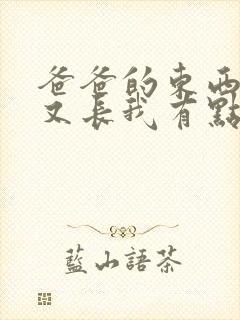 爸爸的東西
又長我有點
藍山語茶